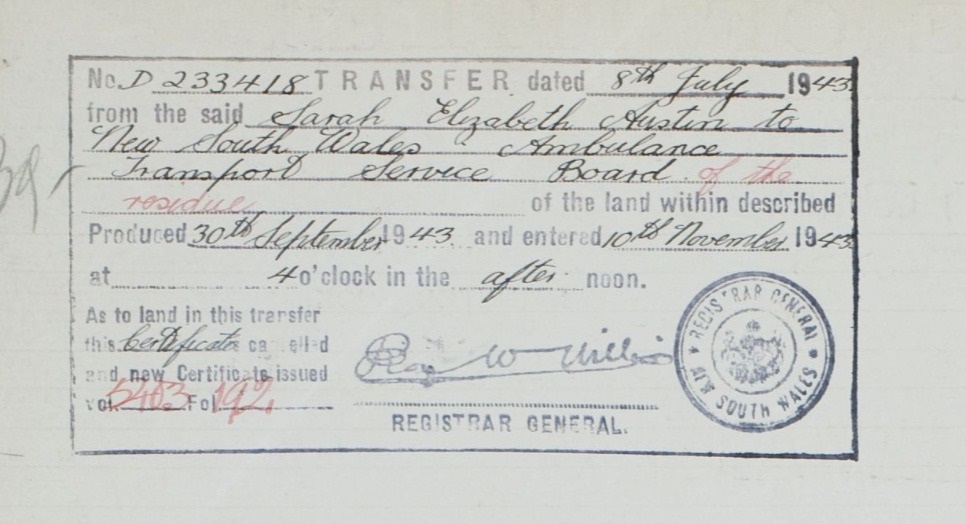 No. D 233418 TRANSFER dated 8th July 1943
from the said Sarah Elizabeth Austin to
New South Wales Ambulance
Transport Service Board of the
residue of the land within described
Produced 30th September 1943 and entered 10th November 1943
at 4 o'clock in the after noon.
As to land in this transfer
this Certificate ca elled
and new Certificate issued
vol. 5403 Fol. 192
W
REGISTRAR GENERAL.
REGISTRAR GENERAL
SOUTH WALES